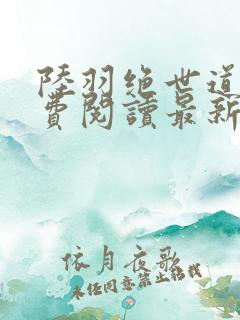 陸羽絕世道
費閱讀最新
依月夜歌
未经同意禁止转载